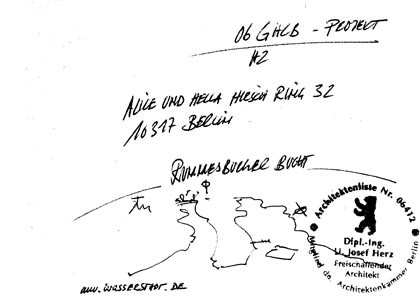 06 GHCB - PROJEKT
H2
ALICE UND HELLA HIRSCH RING 32
10317 BERLIN
RUMMELSBURGER BUCHT
www.wasserstadt.de
Architektenliste Nr. 06412
Dipl.-Ing.
U. Josef Herz
Freischaffender
Architekt
Mitglied d. Architektenkammer Berlin